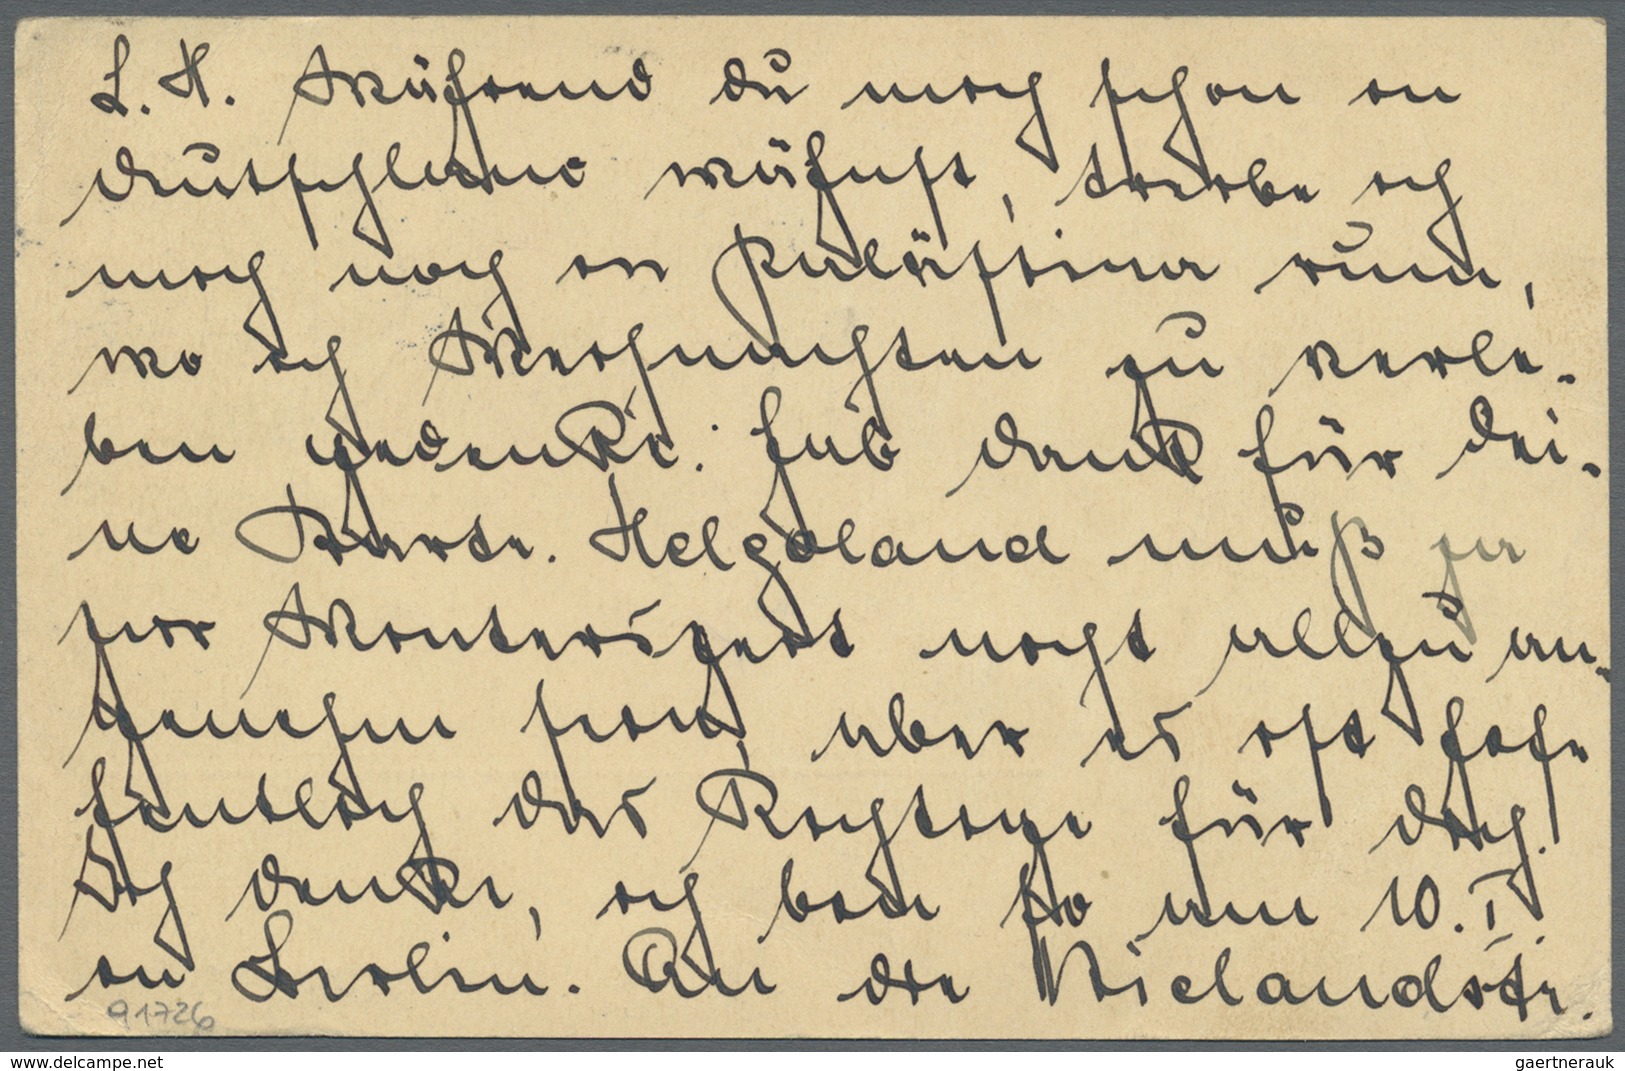 L. H. Während du mich schon in
Deutschland wähnst, treibe ich
mich noch in Palästina rum,
wo ich Weihnachten zu verle-
ben gedenke. Hab Dank für dei-
ne Karte. Helgoland muß ja
zur Winterszeit nicht allzu an-
genehm sein, aber es ist hofe
fentlich das Richtige für dich.
Ich denke, ich bin so um 10. I.
in Berlin. An die Wielandstr.
91726
www.delcampe.net
gaertnerauk